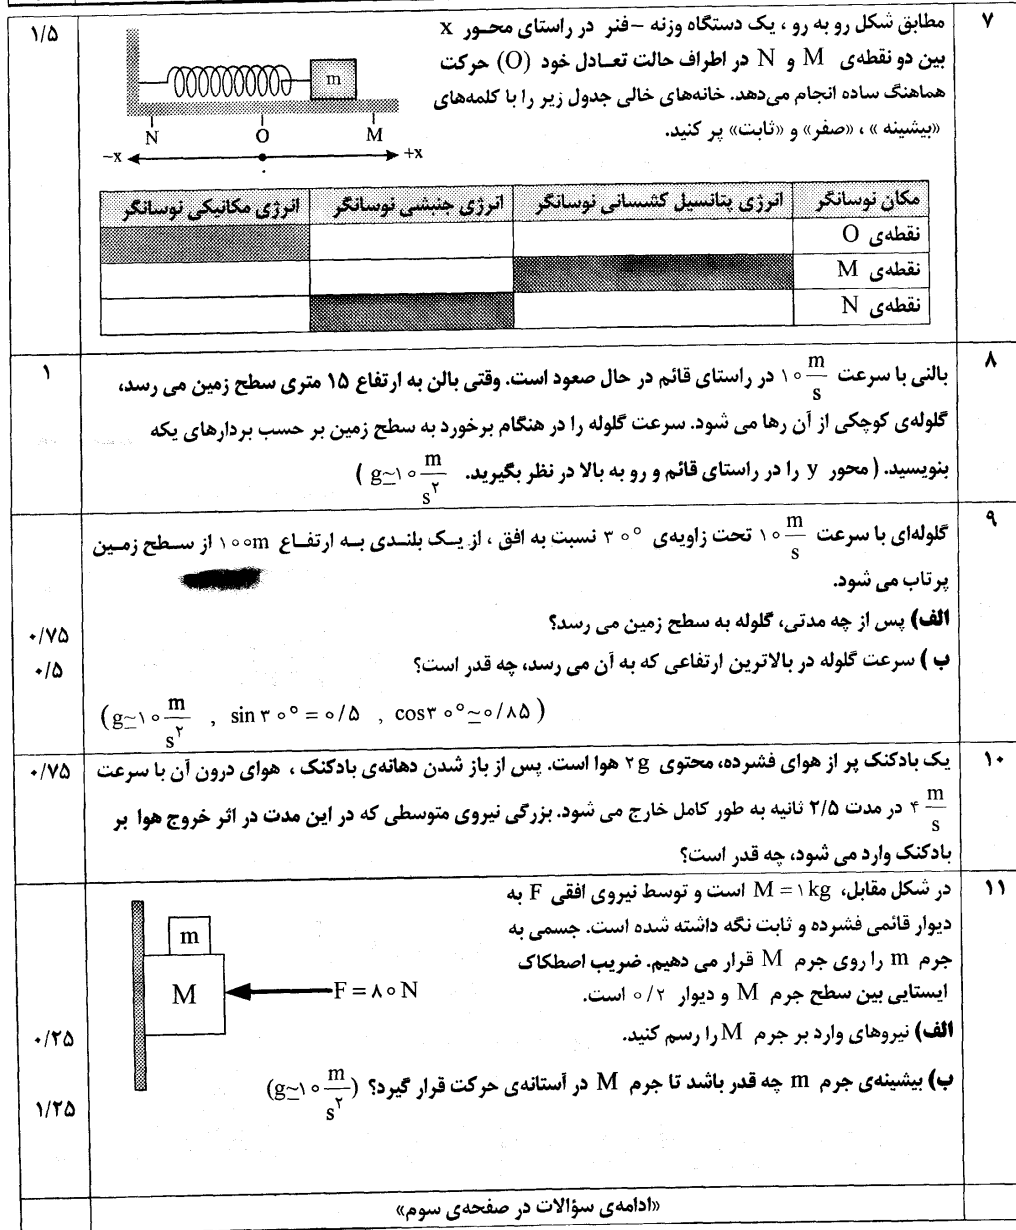 ۷
مطابق شکل رو به رو ، یک دستگاه وزنه –فنر در راستای محور x
۱/۵
بین دو نقطه‌ی M و N در اطراف حالت تعادل خود (O) حرکت
هماهنگ ساده انجام می‌دهد. خانه‌های خالی جدول زیر را با کلمه‌های
«بیشینه » ، «صفر» و «ثابت» پر کنید.
m
N O M
−x +x
مکان نوسانگر انرژی پتانسیل کشسانی نوسانگر انرژی جنبشی نوسانگر انرژی مکانیکی نوسانگر
نقطه‌ی O
نقطه‌ی M
نقطه‌ی N
۸
بالنی با سرعت ۱۰ m/s در راستای قائم در حال صعود است. وقتی بالن به ارتفاع ۱۵ متری سطح زمین می رسد،
۱
گلوله‌ی کوچکی از آن رها می شود. سرعت گلوله را در هنگام برخورد به سطح زمین بر حسب بردارهای یکه
بنویسید. ( محور y را در راستای قائم و رو به بالا در نظر بگیرید. g≃۱۰ m/s² )
۹
گلوله‌ای با سرعت ۱۰ m/s تحت زاویه‌ی ۳۰° نسبت به افق ، از یک بلندی به ارتفاع ۱۰۰m از سطح زمین
پرتاب می شود.
الف) پس از چه مدتی، گلوله به سطح زمین می رسد؟
۰/۷۵
ب ) سرعت گلوله در بالاترین ارتفاعی که به آن می رسد، چه قدر است؟
۰/۵
(g≃۱۰ m/s² , sin ۳۰° = ۰/۵ , cos۳۰° ≃۰/۸۵ )
۱۰
یک بادکنک پر از هوای فشرده، محتوی ۲g هوا است. پس از باز شدن دهانه‌ی بادکنک ، هوای درون آن با سرعت
۰/۷۵
۴ m/s در مدت ۲/۵ ثانیه به طور کامل خارج می شود. بزرگی نیروی متوسطی که در این مدت در اثر خروج هوا بر
بادکنک وارد می شود، چه قدر است؟
۱۱
در شکل مقابل، M = ۱kg است و توسط نیروی افقی F به
دیوار قائمی فشرده و ثابت نگه داشته شده است. جسمی به
جرم m را روی جرم M قرار می دهیم. ضریب اصطکاک
ایستایی بین سطح جرم M و دیوار ۰/۲ است.
m
M
F = ۸۰ N
الف) نیروهای وارد بر جرم M را رسم کنید.
۰/۲۵
ب) بیشینه‌ی جرم m چه قدر باشد تا جرم M در آستانه‌ی حرکت قرار گیرد؟ (g≃۱۰ m/s²)
۱/۲۵
«ادامه‌ی سؤالات در صفحه‌ی سوم»